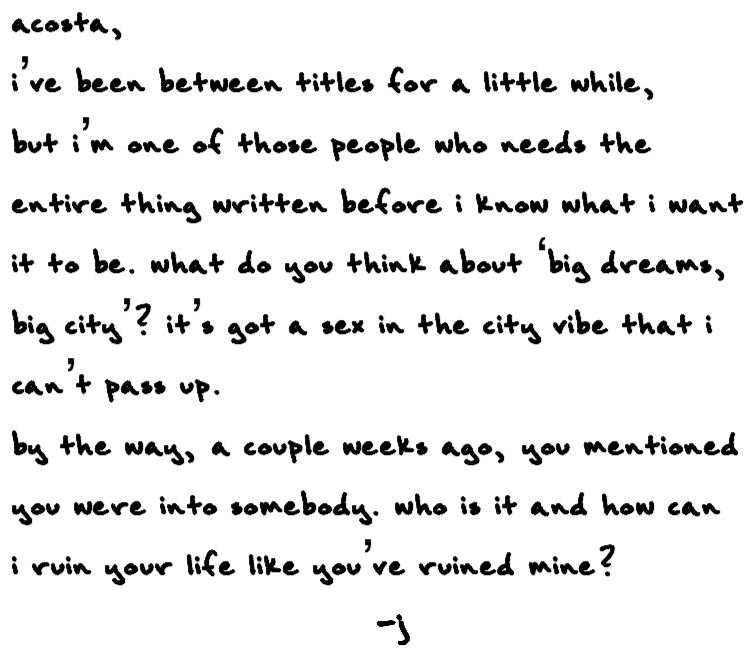 acosta,
i've been between titles for a little while,
but i'm one of those people who needs the
entire thing written before i know what i want
it to be. what do you think about 'big dreams,
big city'? it's got a sex in the city vibe that i
can't pass up.
by the way, a couple weeks ago, you mentioned
you were into somebody. who is it and how can
i ruin your life like you've ruined mine?
-j